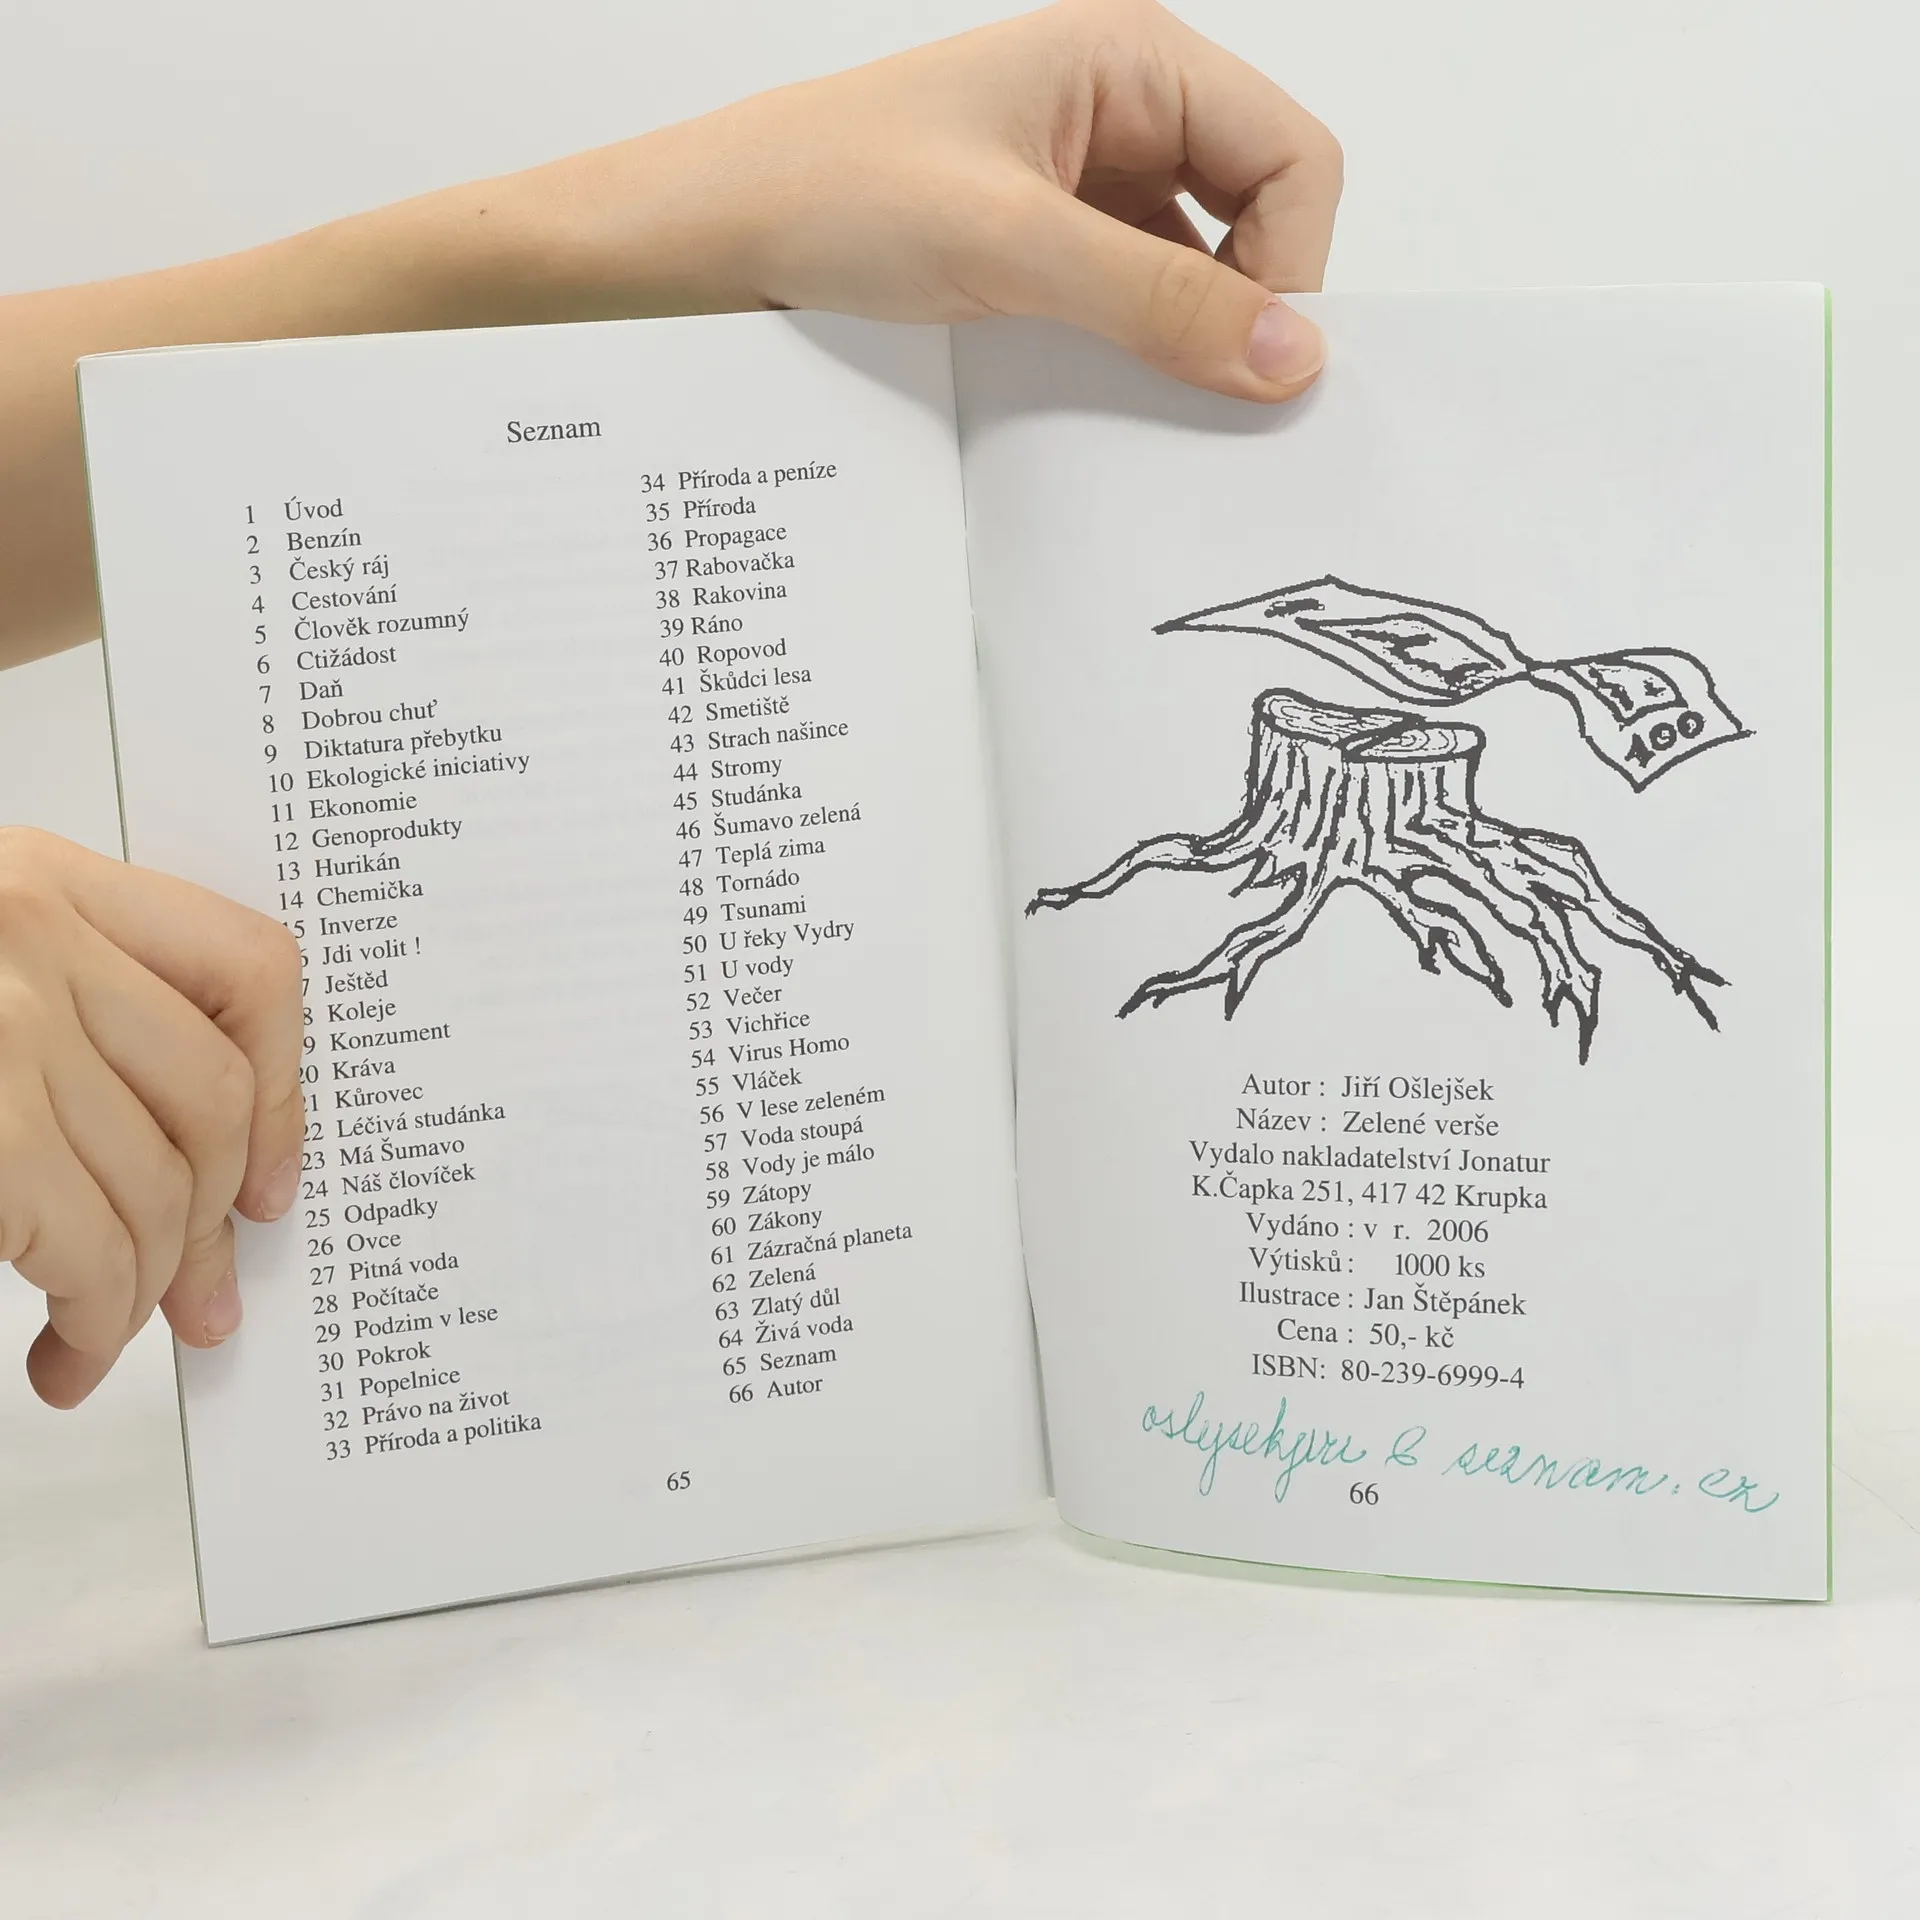 Seznam
1 Úvod
2 Benzín
3 Český ráj
4 Cestování
5 Člověk rozumný
6 Ctižádost
7 Daň
8 Dobrou chuť
9 Diktatura přebytku
10 Ekologické iniciativy
11 Ekonomie
12 Genoprodukty
13 Hurikán
14 Chemička
15 Inverze
6 Jdi volit !
7 Ještěd
8 Koleje
9 Konzument
20 Kráva
21 Kůrovec
22 Léčivá studánka
23 Má Šumavo
24 Náš človíček
25 Odpadky
26 Ovce
27 Pitná voda
28 Počítače
29 Podzim v lese
30 Pokrok
31 Popelnice
32 Právo na život
33 Příroda a politika
34 Příroda a peníze
35 Příroda
36 Propagace
37 Rabovačka
38 Rakovina
39 Ráno
40 Ropovod
41 Škůdci lesa
42 Smetiště
43 Strach našince
44 Stromy
45 Studánka
46 Šumavo zelená
47 Teplá zima
48 Tornádo
49 Tsunami
50 U řeky Vydry
51 U vody
52 Večer
53 Vichřice
54 Virus Homo
55 Vláček
56 V lese zeleném
57 Voda stoupá
58 Vody je málo
59 Zátopy
60 Zákony
61 Zázračná planeta
62 Zelená
63 Zlatý důl
64 Živá voda
65 Seznam
66 Autor
65
100
Autor : Jiří Ošlejšek
Název : Zelené verše
Vydalo nakladatelství Jonatur
K.Čapka 251, 417 42 Krupka
Vydáno : v r. 2006
Výtisků : 1000 ks
Ilustrace : Jan Štěpánek
Cena : 50,- kč
ISBN: 80-239-6999-4
seznam.cz
66